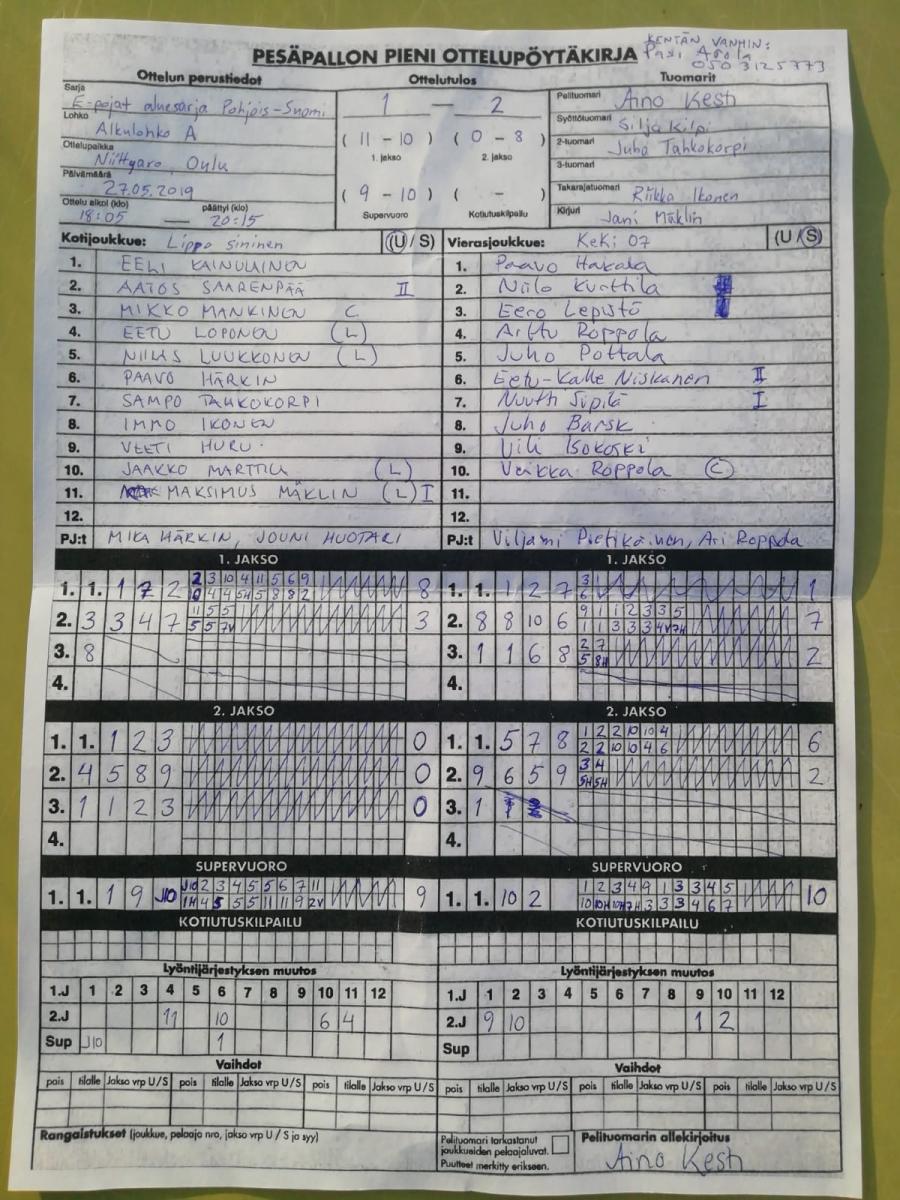 KENTÄN VANHIN:
PESÄPALLON PIENI OTTELUPÖYTÄKIRJA
Pasi
050 3125773
Ottelun perustiedot
Ottelutulos
Tuomarit
Sarja
E-pojat aluesarja Pohjois-Suomi
Lohko
Alkulohko A
Ottelupaikka
Niittyaro, Oulu
Päivämäärä
27.05.2019
Ottelu alkoi (klo) päättyi (klo)
18:05 — 20:15
1 — 2
(11 - 10) (0 - 8)
1. jakso 2. jakso
(9 - 10) ( - )
Supervuoro Kotiutuskilpailu
Pelituomari Aino Kesti
Syöttötuomari Silja Kilpi
2-tuomari Juho Tahkokorpi
3-tuomari
Takarajatuomari Riikka Ikonen
Kirjuri Jani Mäklin
Kotijoukkue: Lippo sininen (U / S)
1. EELI KAINULAINEN
2. AATOS SAARENPÄÄ II
3. MIKKO MANKINEN C
4. EETU LOPONEN (L)
5. NIILAS LUUKKONEN (L)
6. PAAVO HÄRKIN
7. SAMPO TAHKOKORPI
8. IMMO IKONEN
9. VEETI HURU
10. JAAKKO MARTTILA (L)
11. MAKSIMUS MÄKLIN (L) I
12.
PJ:t MIKA HÄRKIN, JOUNI HUOTARI
Vierasjoukkue: KeKi 07 (U / S)
1. Paavo Hakala
2. Niilo Kurttila
3. Eero Lepistö
4. Arttu Roppola
5. Juho Pottala
6. Eetu-Kalle Niskanen II
7. Nuutti Sipilä I
8. Juho Barsk
9. Vili Isokoski
10. Veikka Roppola (C)
11.
12.
PJ:t Viljami Pietikäinen, Ari Roppola
1. JAKSO
1. 1. 1 7 2 2 3 10 4 11 5 6 9 8
4 4 5H 5 8 8 2
2. 3 3 4 7 11 5 5 3
5 5 7V
3. 8
4.
1. JAKSO
1. 1. 1 2 7 3 1
6
2. 8 8 10 6 9 1 1 2 3 3 5 7
1 1 3 3 3 4V 7H
3. 1 1 6 8 2 7 2
5 8H
4.
2. JAKSO
1. 1. 1 2 3 0
2. 4 5 8 9 0
3. 1 1 2 3 0
4.
2. JAKSO
1. 1. 5 7 8 1 2 2 10 10 4 6
2 2 10 10 4 6
2. 9 6 5 9 3 4 2
5H 5H
3. 1
4.
SUPERVUORO
1. 1. 1 9 J10 J10 2 3 4 5 5 6 7 11 9
1H 4 5 5 5 11 11 9 2V
SUPERVUORO
1. 1. 10 2 1 2 3 4 9 1 3 3 4 5 10
10 10H 10H 7H 3 3 3 4 6 7
KOTIUTUSKILPAILU
KOTIUTUSKILPAILU
Lyöntijärjestyksen muutos
1.J 1 2 3 4 5 6 7 8 9 10 11 12
2.J 11 10 6 4
Sup J10 1
Lyöntijärjestyksen muutos
1.J 1 2 3 4 5 6 7 8 9 10 11 12
2.J 9 10 1 2
Sup
Vaihdot
pois tilalle Jakso vrp U/S pois tilalle Jakso vrp U/S pois tilalle Jakso vrp U/S
Vaihdot
pois tilalle Jakso vrp U/S pois tilalle Jakso vrp U/S pois tilalle Jakso vrp U/S
Rangaistukset (joukkue, pelaaja nro, jakso vrp U / S ja syy)
Pelituomari tarkastanut
joukkueiden pelaajaluvat.
Puutteet merkitty erikseen.
Pelituomarin allekirjoitus
Aino Kesti